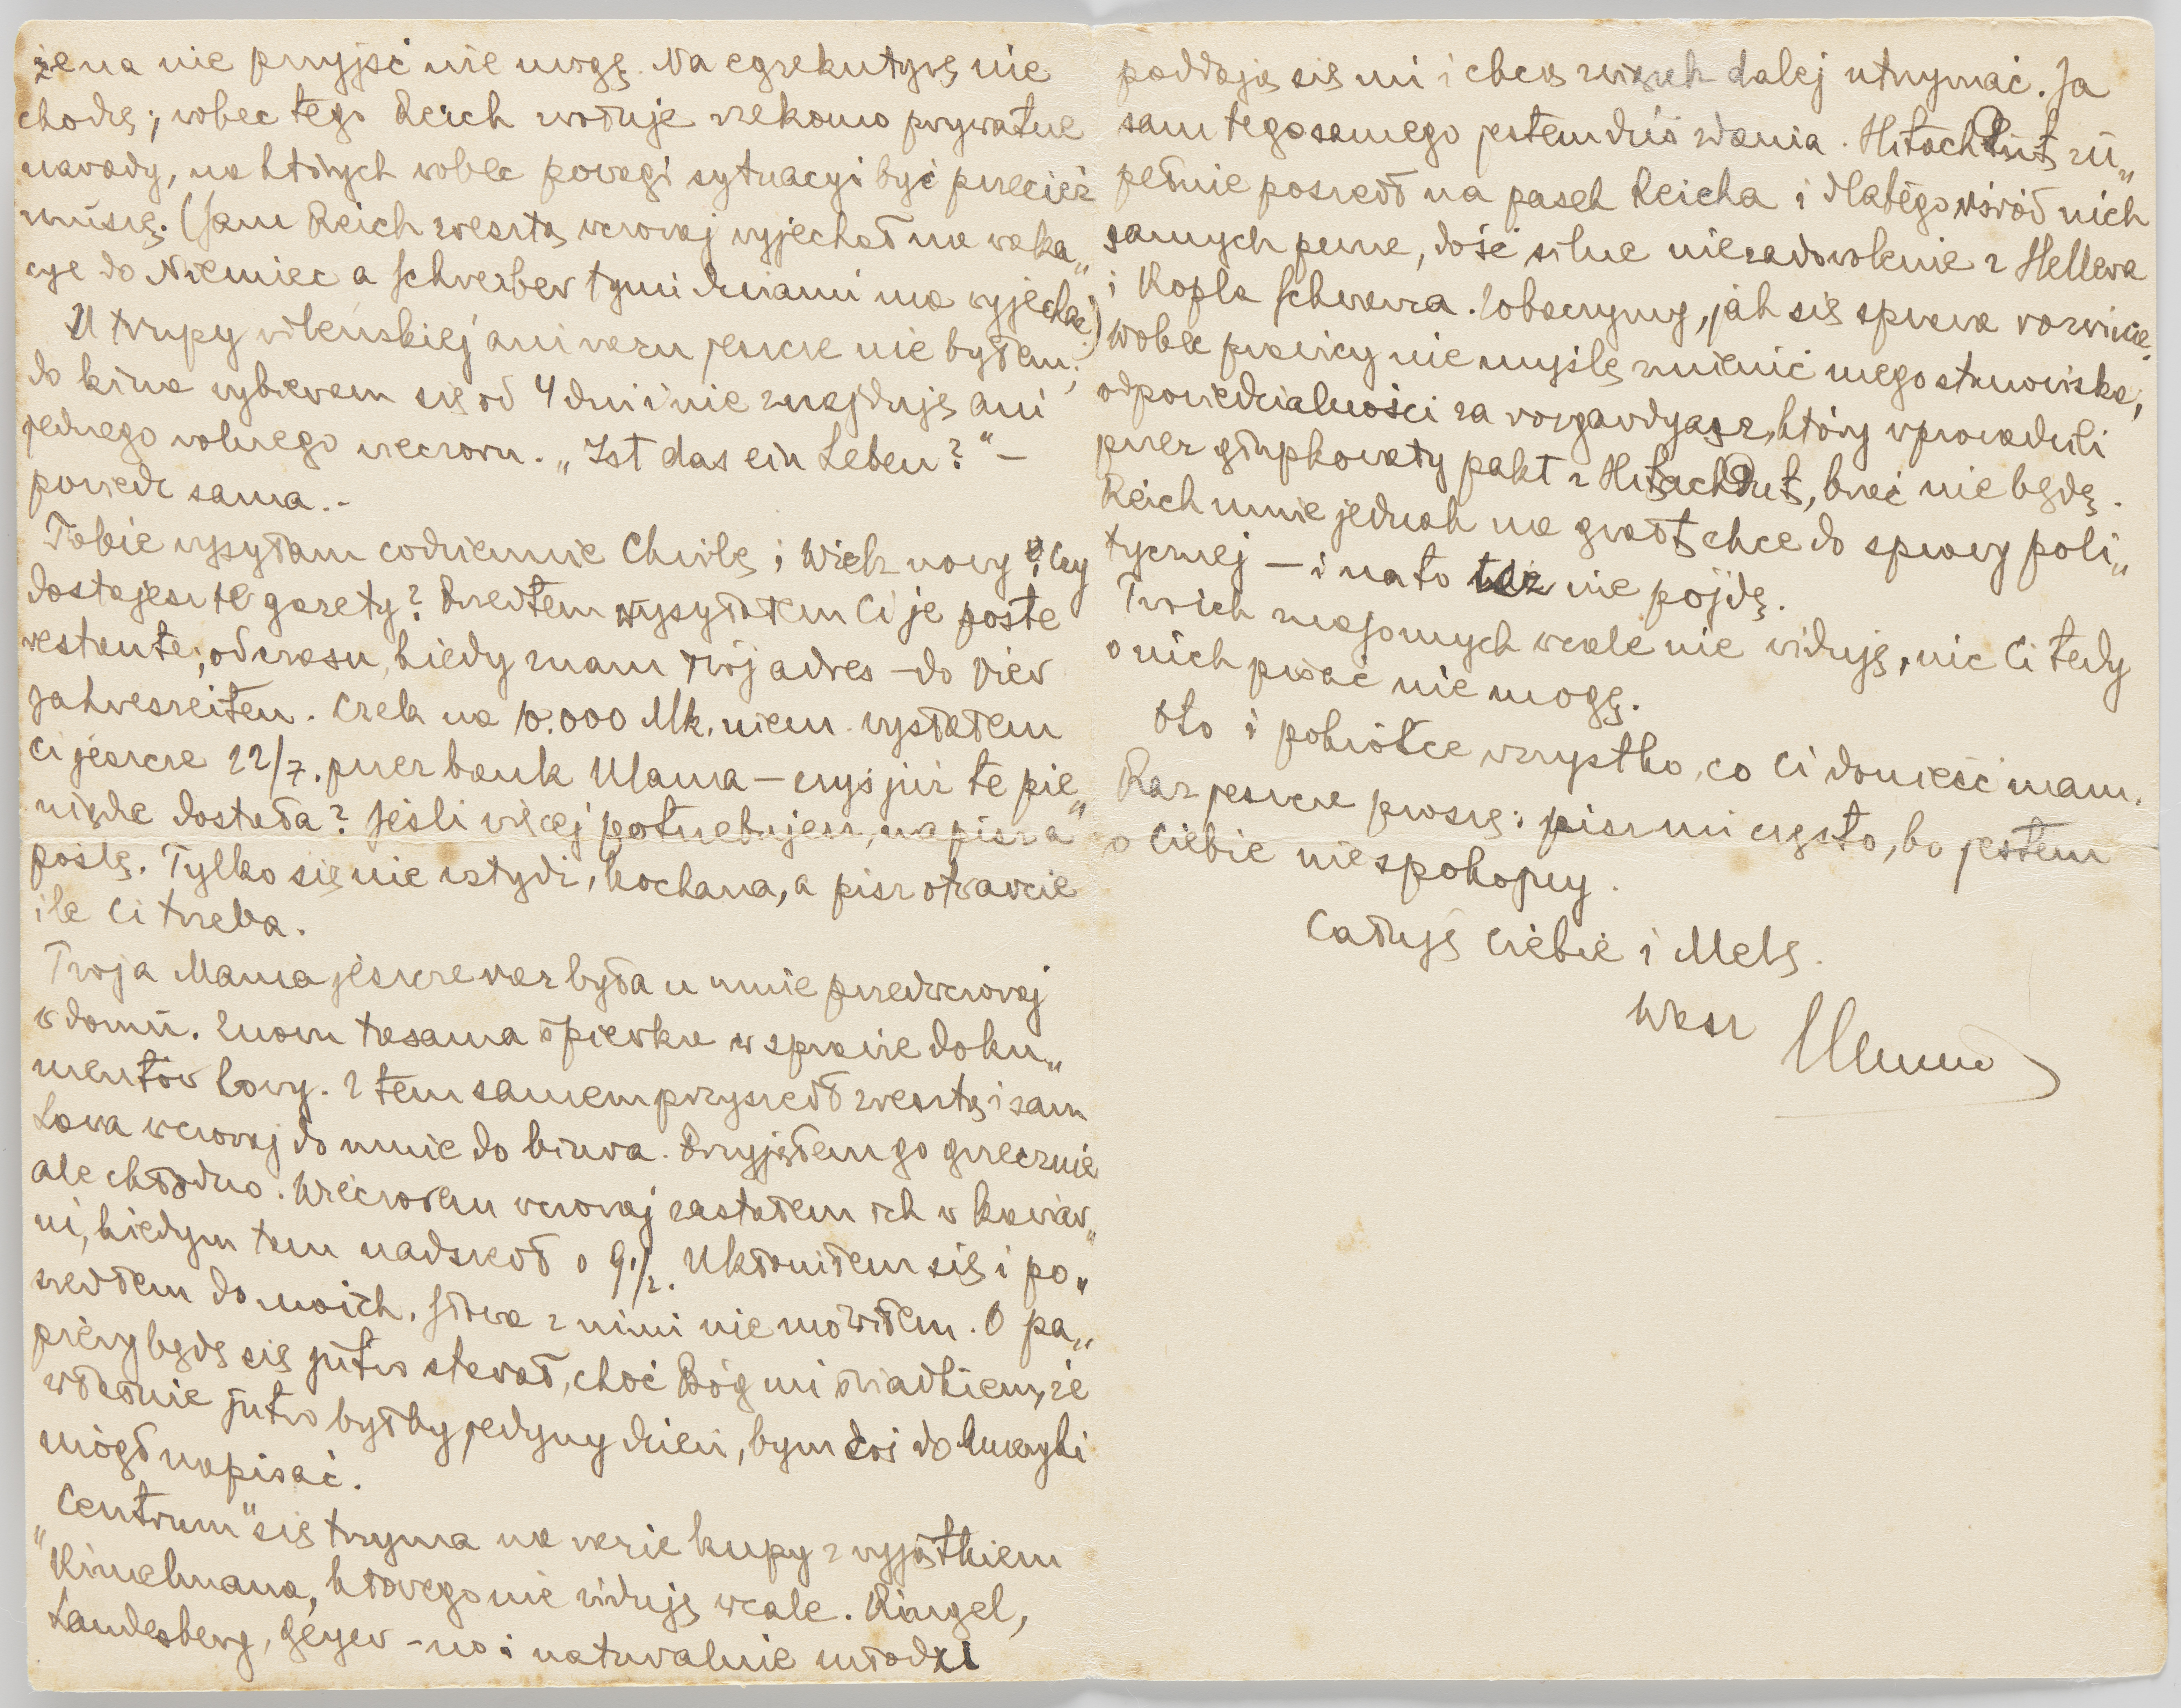 żena nie przyjść nie mogę. Na egzekutywę nie
chodzę; wobec tego Reich zwołuje rzekomo prywatne
narady, na których wobec powagi sytuacyi być przecież
muszę. (Sam Reich zresztą wczoraj wyjechał na waka„
cye do Niemiec a Schreiber tymi dniami ma wyjechać)
U trupy wileńskiej ani razu jeszcze nie byłem;
do kina wybieram się od 4 dni i nie znajduję ani
jednego wolnego wieczoru. „Ist das ein Leben?“ –
powiedz sama. –
Tobie wysyłam codziennie Chwilę i Wiek nowy. Czy
dostajesz te gazety? Przedtem wysyłałem Ci je poste
restante; od czasu, kiedy znam Twój adres – do Vier
Jahreszeiten. Czek na 10.000 Mk. niem. wysłałem
Ci jeszcze 22/7. przez bank Ulama – czyś już te pie„
niądze dostała? Jeśli więcej potrzebujesz, napisz a
poślę. Tylko się nie wstydź, kochana, a pisz otwarcie
ile Ci trzeba.
Twoja Mama jeszcze raz była u mnie przedwczoraj
w domu. Znowu tasama śpiewka w sprawie doku„
mentów Lowy. Z tem samem przyszedł zresztą i sam
Lowa wczoraj do mnie do biura. Przyjąłem go grzecznie
ale chłodno. Wieczorem wczoraj zastałem ich w kawiar„
ni, kiedym tam nadszedł o 9 1/2. Ukłoniłem się i po„
szedłem do moich. Słowa z nimi nie mówiłem. O pa„
piery będę się jutro starał, choć Bóg mi świadkiem, że
właśnie jutro byłby jedyny dzień, bym coś do
mógł napisać.
„Centrum“ się trzyma na razie kupy z wyjątkiem
którego nie widuję wcale. Ringel,
Landesberg, Geyer – no i naturalnie młodzi
poddają się mi i chcą związek dalej utrzymać. Ja
sam tegosamego jestem dziś zdania. Hitachdut zu„
pełnie poszedł na pasek Reicha i dlatego wśród nich
samych panuje, dość silne niezadowolenie z Hellera
i Kopla Schwarza. Zobaczymy, jak się sprawa rozwinie.
Wobec prawicy nie myślę zmienić mego stanowiska,
odpowiedzialności za rozgardyasz, który wprowadzili
przez głupkowaty pakt z Hitachdut, brać nie będę.
Reich mnie jednak na gwałt chce do sprawy poli„
tycznej – i na to też nie pójdę.
Twoich znajomych wcale nie widuję, nic Ci tedy
o nich pisać nie mogę.
Oto i pokrótce wszystko, co Ci donieść mam.
Raz jeszcze proszę: pisz mi często, bo jestem
o Ciebie niespokojny.
Całuję Ciebie i Melę.
Wasz